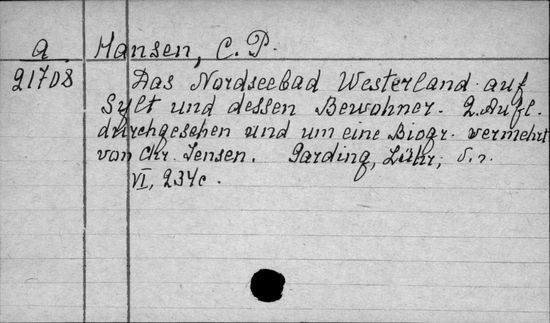 a Hansen, C. P.
21708 Das Nordseebad Westerland auf
Sylt und dessen Bewohner. 2. Aufl.
durchgesehen und um eine Biogr. vermehrt
von Chr. Jensen. Garding, Lühr, s. a.
VI, 234 c.